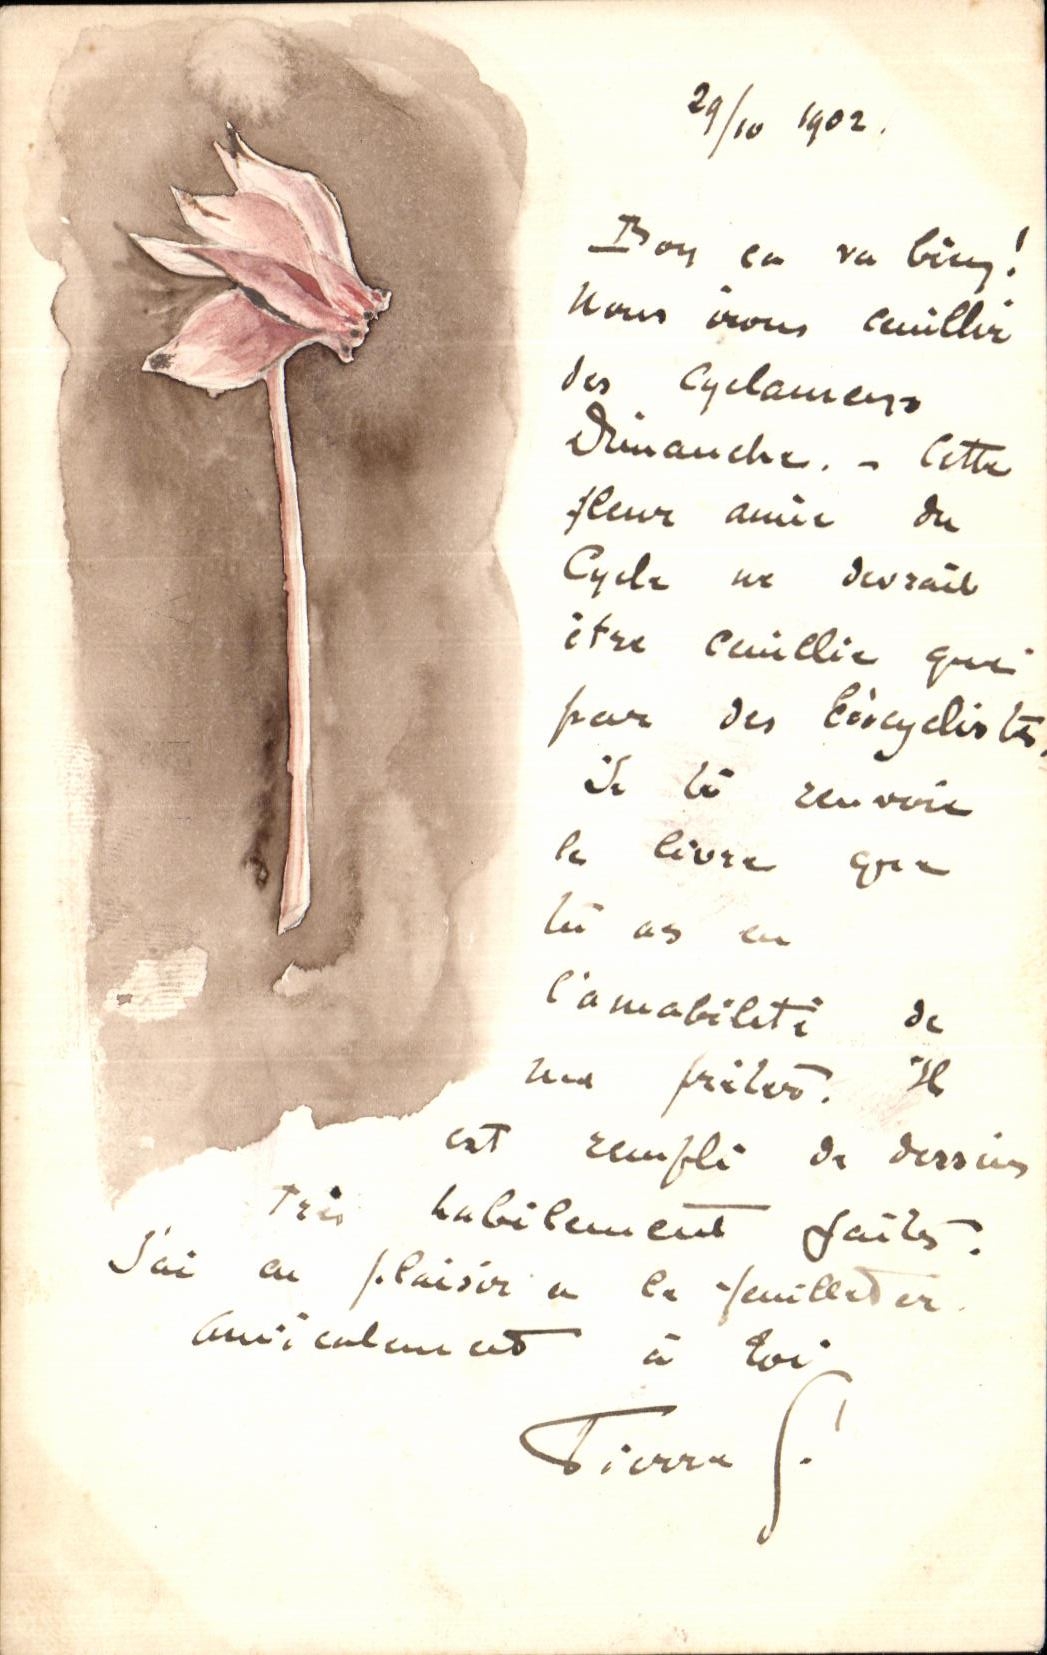 29/10 1902.
Bon ça va bien!
Nous irons cueillir
des Cyclamens
Dimanche. - Cette
fleur amie du
Cycle ne devrait
être cueillie que
par des bicyclistes.
Je te renvoie
le livre que
tu as eu
l'amabilité de
me prêter. Il
est rempli de dessins
très habilement faits.
J'ai eu plaisir a le feuilleter.
Amicalement à toi
Pierre S.